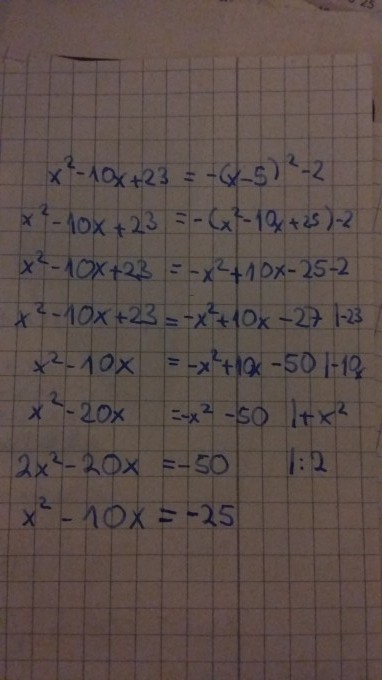 x²-10x+23 = -(x-5)²-2
x²-10x+23 = -(x²-10x+25)-2
x²-10x+23 = -x²+10x-25-2
x²-10x+23 = -x²+10x-27 |-23
x²-10x = -x²+10x-50 |-10x
x²-20x = -x²-50 |+x²
2x²-20x = -50 |:2
x²-10x = -25